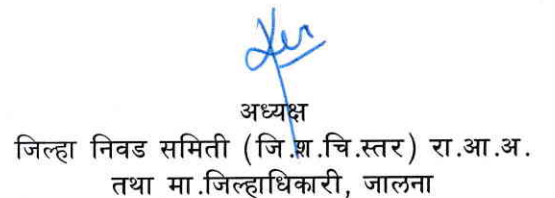 अध्यक्ष
जिल्हा निवड समिती (जि.श.चि.स्तर) रा.आ.अ.
तथा मा.जिल्हाधिकारी, जालना